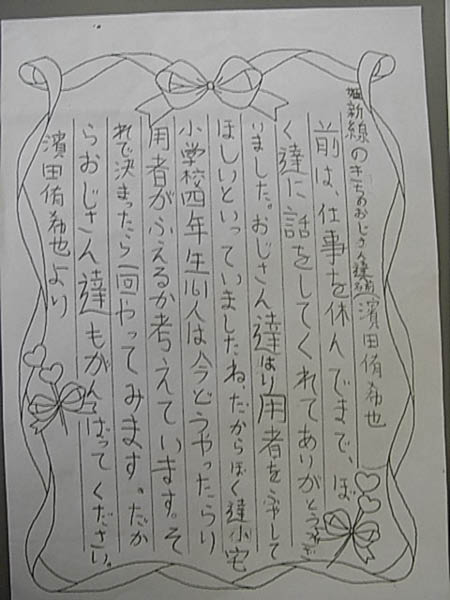 姫新線のきちのおじさん達 濱田侑希也
前は、仕事を休んでまで、ぼ
く達に話をしてくれてありがとうござ
いました。おじさん達はり用者をふやして
ほしいといっていましたね、だからぼく達小宅
小学校四年生161人は今どうやったらり
用者がふえるか考えています。そ
れで決まったら一回やってみます。だか
らおじさん達もがんばってください。
濱田侑希也より